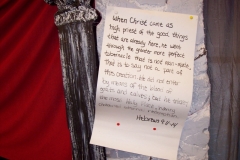 When Christ came as
high priest of the good things
that are already here, he went
through the greater more perfect
tabernacle that is not man-made,
That is to say not a part of
this creation. He did not enter
by means of the blood of
goats and calves; but he entered
the Most Holy Place
Hebrews 9:11-12